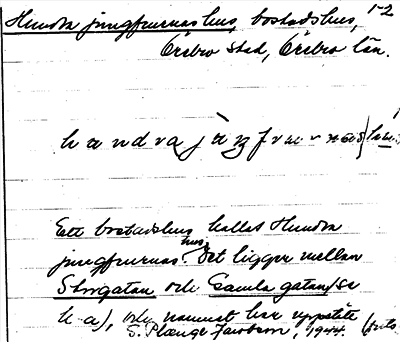 Hundra jungfrurnas hus, bostadshus, 1-2
Örebro stad, Örebro län.
Ett bostadshus kallas Hundra
jungfrurnas hus. Det ligger mellan
Storgatan och Gamla gatan (se
k-a), och namnet har uppstått
S. Plænge Jacobson, 1944. (forts.